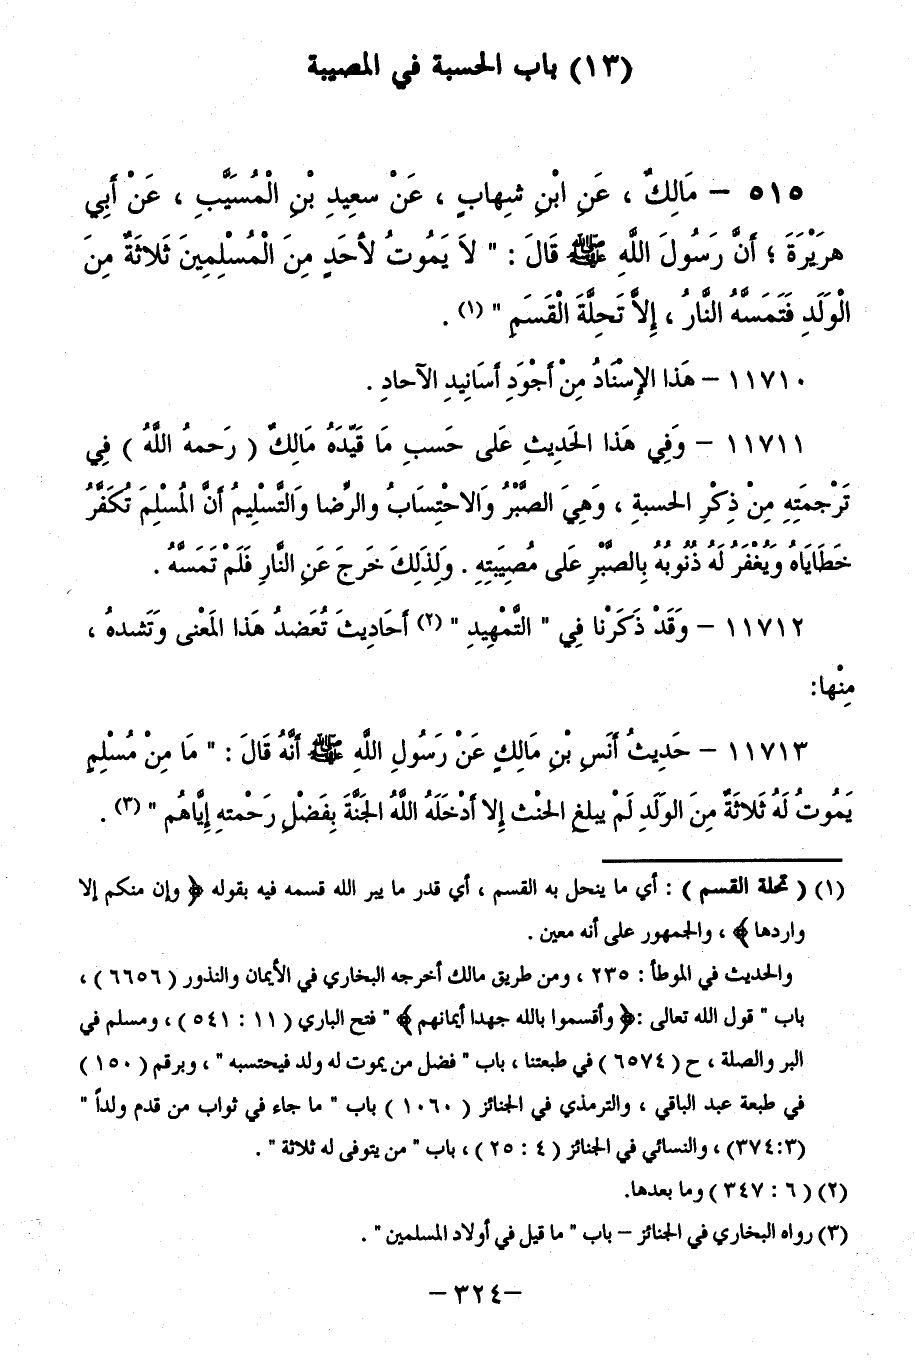 (١٣) باب الحسبة في المصيبة
٥١٥ – مَالِكٌ ، عَنِ ابْنِ شِهابٍ ، عَنْ سعِيدِ بْنِ الْمُسَيَّبِ ، عَنْ أَبِي
هرَيْرَةَ ؛ أَنَّ رَسُولَ اللَّهِ ﷺ قَالَ : " لاَ يَمُوتُ لأحَدٍ مِنَ الْمُسْلِمِينَ ثَلاثَةٌ مِنَ
الْوَلَدِ فَتَمَسَّهُ النَّارُ ، إِلاَّ تَحِلَّةَ الْقَسَمِ " (١) .
١١٧١٠ – هَذا الإِسْنَادُ مِنْ أَجْوَدِ أَسَانِيدِ الآحادِ .
١١٧١١ – وَفِي هَذا الحَدِيثِ عَلى حَسبِ مَا قَيّدَهُ مَالِكٌ ( رَحمهُ اللَّهُ ) فِي
تَرْجمَتِهِ مِنْ ذِكْرِ الحسبةِ ، وَهِيَ الصَّبْرُ وَالاحْتِسَابُ والرِّضا وَالتَّسْلِيمُ أَنَّ المُسْلِمَ تُكَفَّرُ
خَطَايَاهُ وَيُغْفَرُ لَهُ ذُنُوبُهُ بِالصَّبْرِ عَلى مُصِيبَتِهِ . وَلِذَلِكَ خَرجَ عَنِ النَّارِ فَلَمْ تَمَسَّهُ .
١١٧١٢ – وَقَدْ ذَكَرْنا فِي " التَّمْهِيدِ " (٢) أَحَادِيثَ تُعَضدُ هَذا المَعْنى وَتَشدهُ ،
مِنْها:
١١٧١٣ – حَدِيثُ أَنَسِ بْنِ مَالِكٍ عَنْ رَسُولِ اللَّهِ ﷺ أَنَّهُ قَالَ : " مَا مِنْ مُسْلِمٍ
يَمُوتُ لَهُ ثَلاثَةٌ مِنَ الوَلَدِ لَمْ يبلغِ الحْنْث إِلا أَدْخَلَهُ اللَّهُ الجَنَّةَ بِفَضْلِ رَحْمتهِ إِيَّاهُم " (٣) .
(١) ( تحلة القسم ) : أي ما ينحل به القسم ، أي قدر ما يبر الله قسمه فيه بقوله ﴿ وإن منكم إلا
واردها ﴾ ، والجمهور على أنه معين .
والحديث في الموطأ : ٢٣٥ ، ومن طريق مالك أخرجه البخاري في الأيمان والنذور ( ٦٦٥٦ ) ،
باب " قول الله تعالى :﴿ وأقسموا بالله جهدا أيمانهم ﴾ " فتح الباري ( ١١ : ٥٤١ ) ، ومسلم في
البر والصلة ، ح ( ٦٥٧٤ ) في طبعتنا ، باب " فضل من يموت له ولد فيحتسبه " ، وبرقم ( ١٥٠ )
في طبعة عبد الباقي ، والترمذي في الجنائز ( ١٠٦٠ ) باب " ما جاء في ثواب من قدم ولداً "
(٣٧٤:٣) ، والنسائي في الجنائز ( ٤ : ٢٥ ) ، باب " من يتوفى له ثلاثة " .
(٢) ( ٦ : ٣٤٧ ) وما بعدها.
(٣) رواه البخاري في الجنائز – باب " ما قيل في أولاد المسلمين " .
– ٣٢٤ –